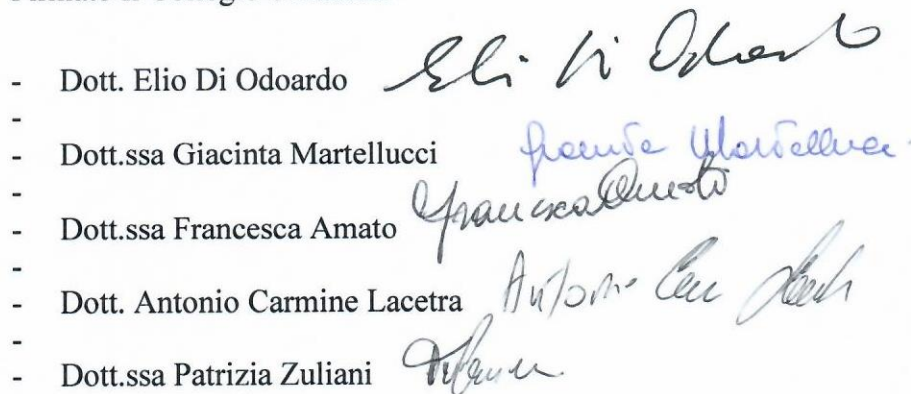 - Dott. Elio Di Odoardo Elio Di Odoardo
-
- Dott.ssa Giacinta Martellucci Giacinta Martellucci
-
- Dott.ssa Francesca Amato Francesca Amato
-
- Dott. Antonio Carmine Lacetra Antonio
-
- Dott.ssa Patrizia Zuliani